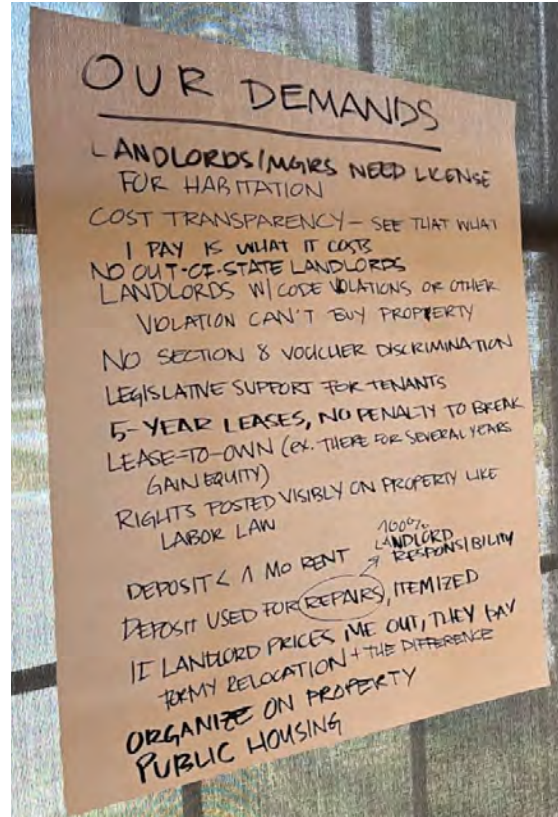 OUR DEMANDS
LANDLORDS/MGRS NEED LICENSE
FOR HABITATION
COST TRANSPARENCY - SEE THAT WHAT
I PAY IS WHAT IT COSTS
NO OUT-OF-STATE LANDLORDS
LANDLORDS W/ CODE VIOLATIONS OR OTHER
VIOLATION CAN'T BUY PROPERTY
NO SECTION 8 VOUCHER DISCRIMINATION
LEGISLATIVE SUPPORT FOR TENANTS
5-YEAR LEASES, NO PENALTY TO BREAK
LEASE-TO-OWN (EX. THERE FOR SEVERAL YEARS
GAIN EQUITY)
RIGHTS POSTED VISIBLY ON PROPERTY LIKE
LABOR LAW
100%
LANDLORD
RESPONSIBILITY
DEPOSIT < 1 MO RENT
DEPOSIT USED FOR REPAIRS, ITEMIZED
IF LANDLORD PRICES ME OUT, THEY PAY
FOR MY RELOCATION + THE DIFFERENCE
ORGANIZE ON PROPERTY
PUBLIC HOUSING